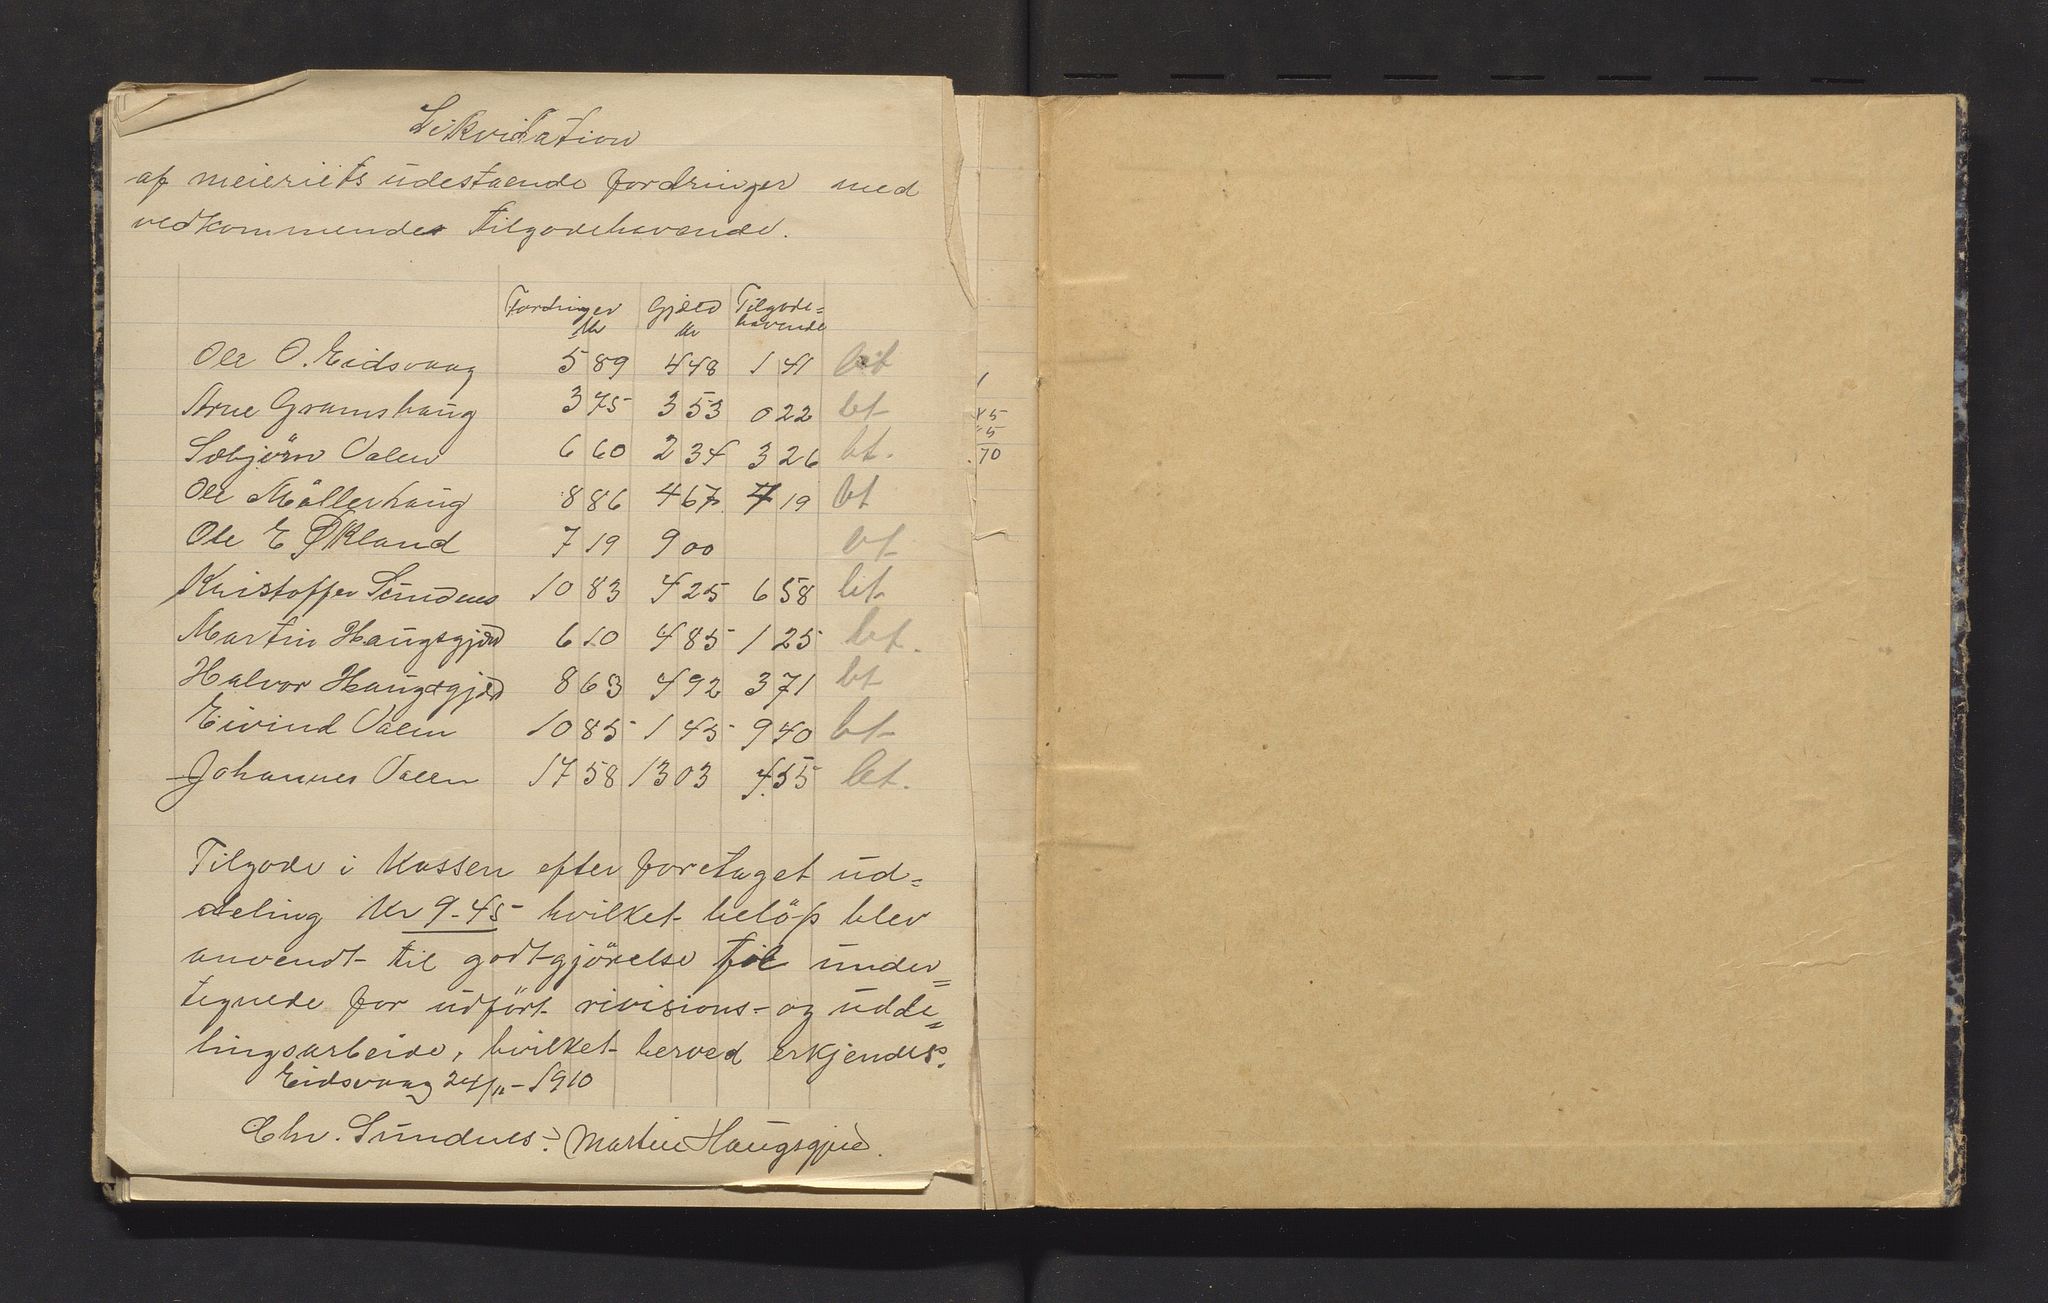 Likvidation
af meieriets udestaaende fordringer med
vedkommendes tilgodehavende.
Fordringer Gjæld Tilgode=
Kr Kr havende
Ole O. Eidsvaag 5 89 4 48 1 41 bt
Arne Gramshaug 3 75 3 53 0 22 bt
Sebjörn Valen 6 60 2 34 3 26 bt.
Ole Möllerhaug 8 86 4 67 4 19 bt
Ole E Økland 7 19 9 00 bt
Kristoffer Sundnes 10 83 4 25 6 58 bt
Martin Haugsgjerd 6 10 4 85 1 25 bt.
Halvor Haugsgjerd 8 63 4 92 3 71 bt
Eivind Valen 10 85 1 45 9 40 bt
Johannes Valen 17 58 13 03 4.55 bt.
Tilgode i Kassen efter foretaget ud=
deling Kr 9-45 hvilket belöp blev
anvendt til godtgjörelse til under=
tegnede for udfört rivisions- og udde=
lingsarbeide, hvilket herved erkjendes.
Eidsvaag 24/11-1910
Chr. Sundnes. Martin Haugsgjerd.
5
5
70